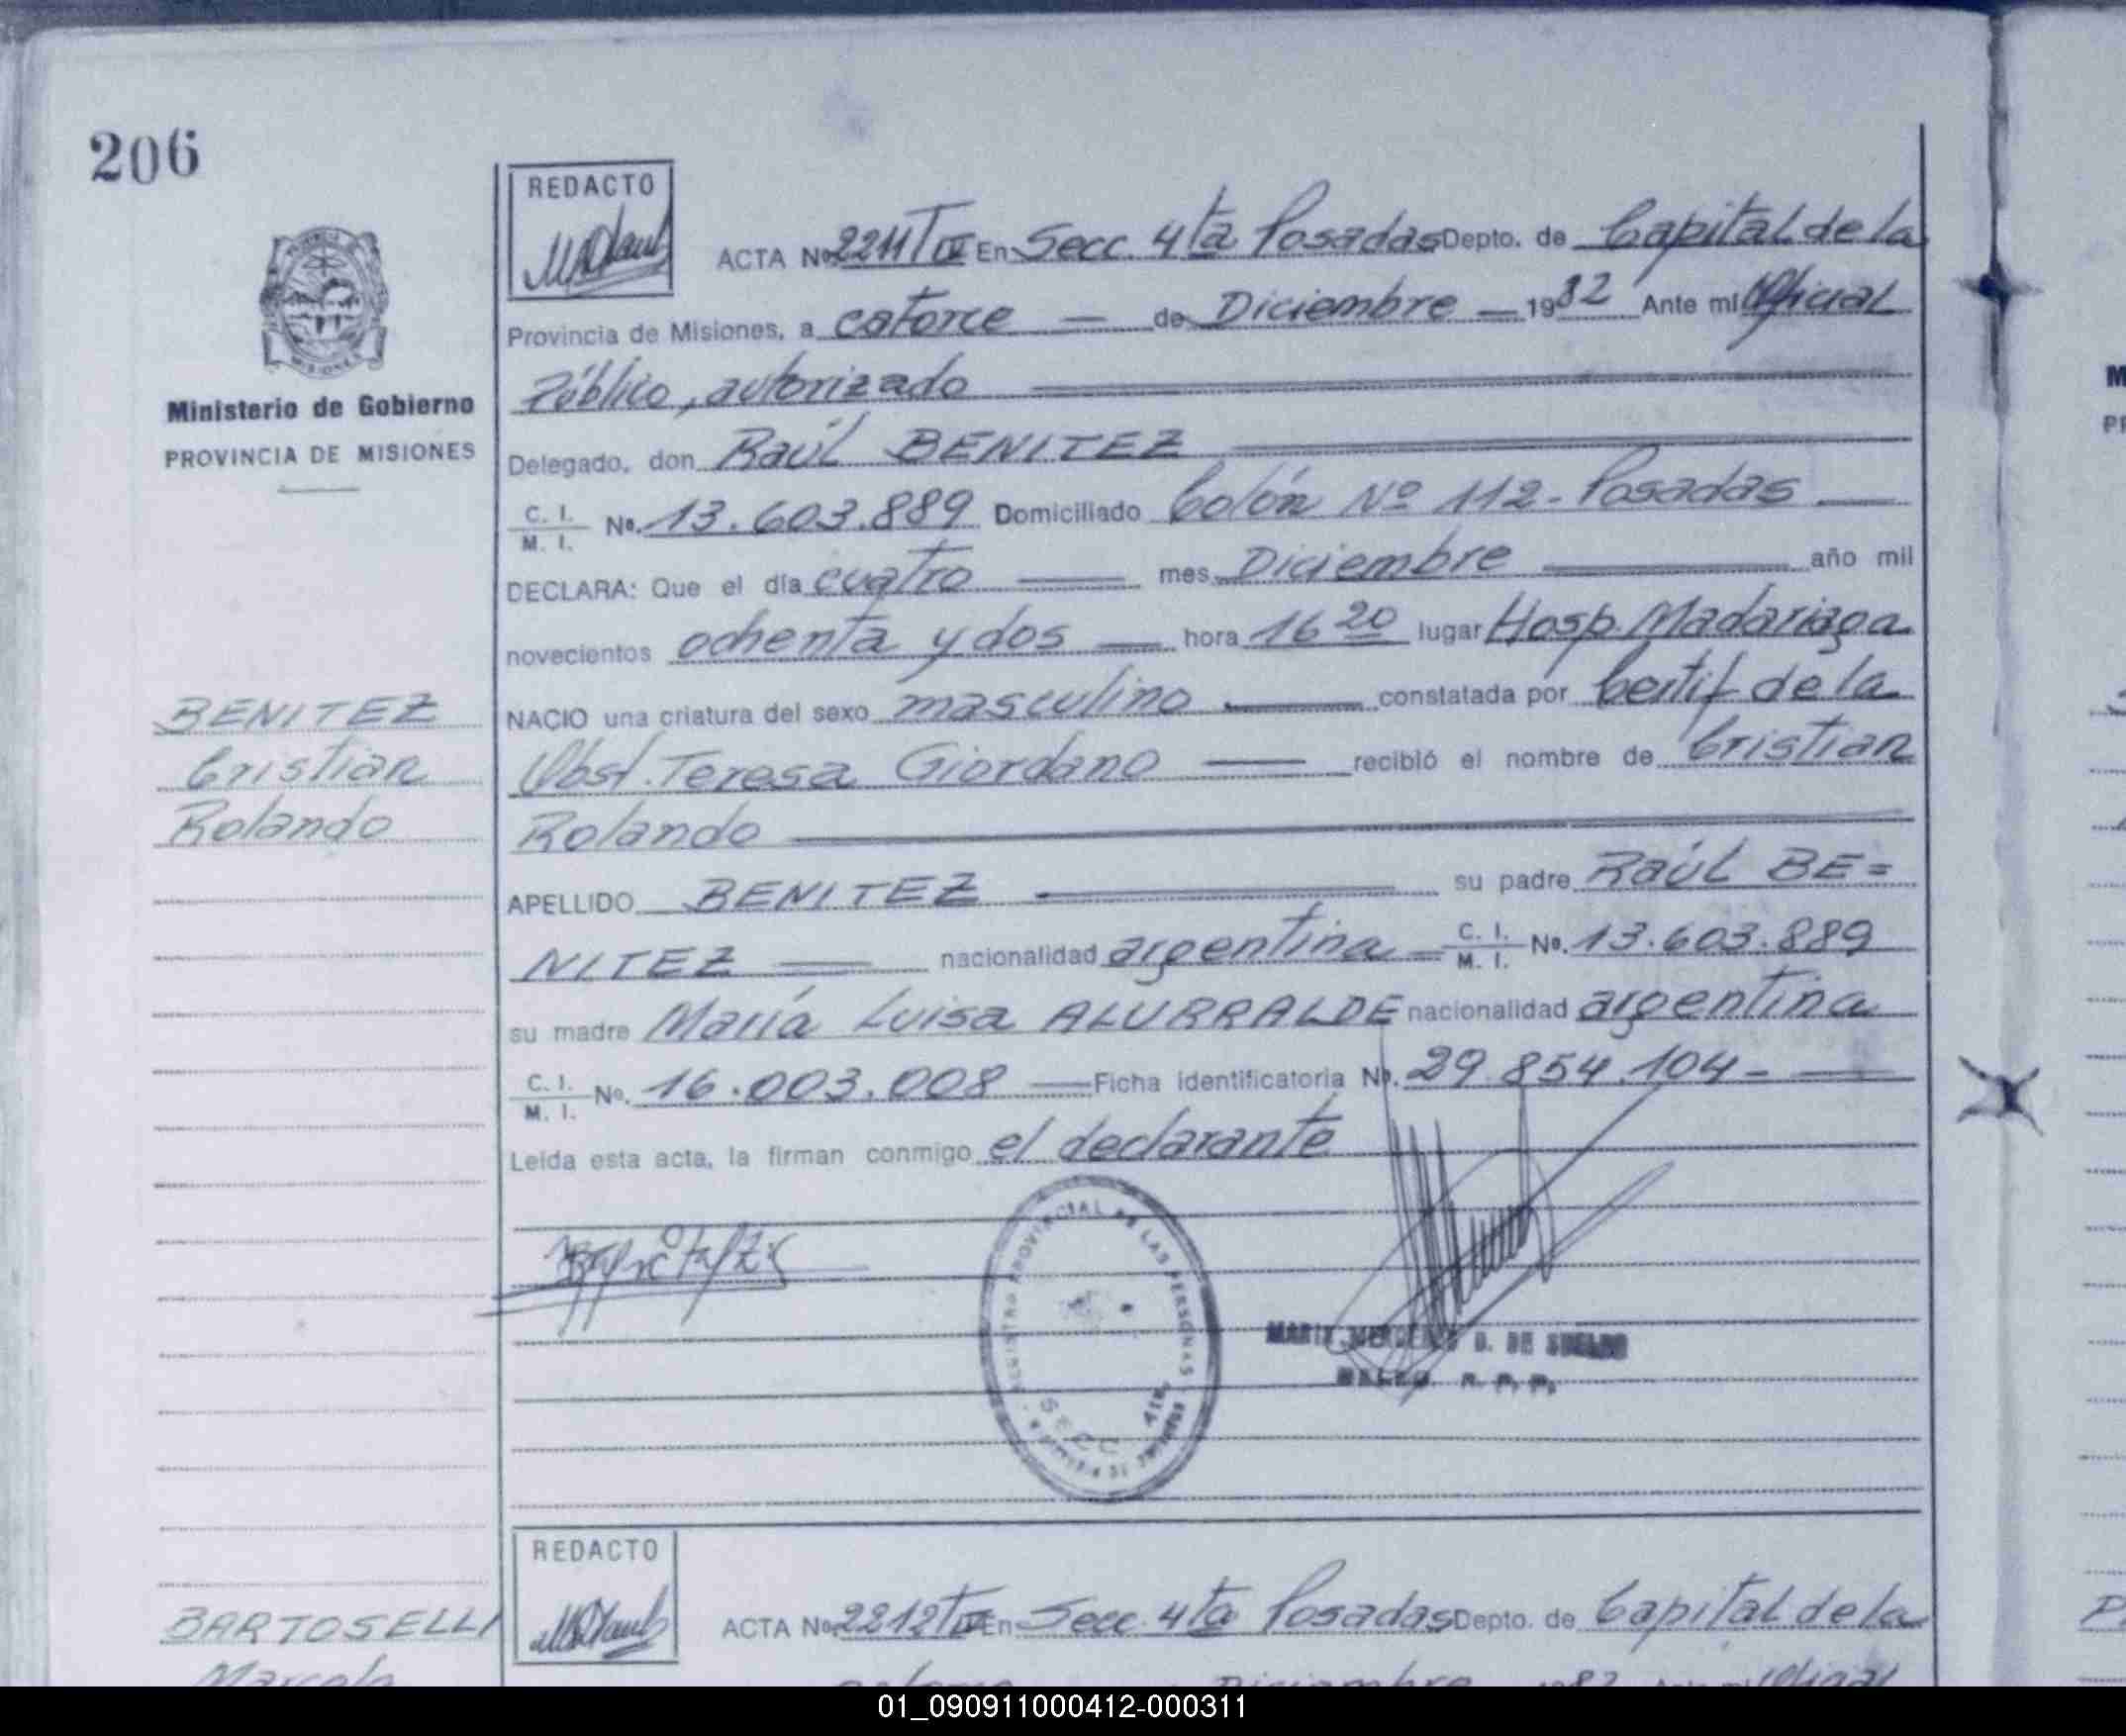 206
REDACTO
ACTA Nº 2211 T IV En Secc. 4ta Posadas Depto. de Capital de la
Provincia de Misiones, a catorce — de Diciembre — 1982 Ante mi Oficial
Público, autorizado
Ministerio de Gobierno
PROVINCIA DE MISIONES
Delegado, don Raúl BENITEZ
C. I.
M. I. Nº. 13.603.889 Domiciliado Colón Nº 112 - Posadas
DECLARA: Que el día cuatro — mes Diciembre — año mil
novecientos ochenta y dos — hora 16 20 lugar Hosp. Madariaga
BENITEZ
Cristian
Rolando
NACIO una criatura del sexo masculino — constatada por Certif de la
Obst. Teresa Giordano — recibió el nombre de Cristian
Rolando
APELLIDO BENITEZ — su padre Raúl BE=
NITEZ — nacionalidad argentina — C. I.
M. I. Nº. 13.603.889
su madre María Luisa ALURRALDE nacionalidad argentina
C. I.
M. I. Nº. 16.003.008 — Ficha identificatoria Nº. 29.854.104 -
Leída esta acta, la firman conmigo el declarante
REGISTRO PROVINCIAL DE LAS PERSONAS
SECC. 4ta.
D. DE
R. P. P.
REDACTO
BARTOSELLI
Marcelo
ACTA Nº 2212 T IV En Secc. 4ta Posadas Depto. de Capital de la
catorce Diciembre 1982 Ante mi Oficial
01_090911000412-000311